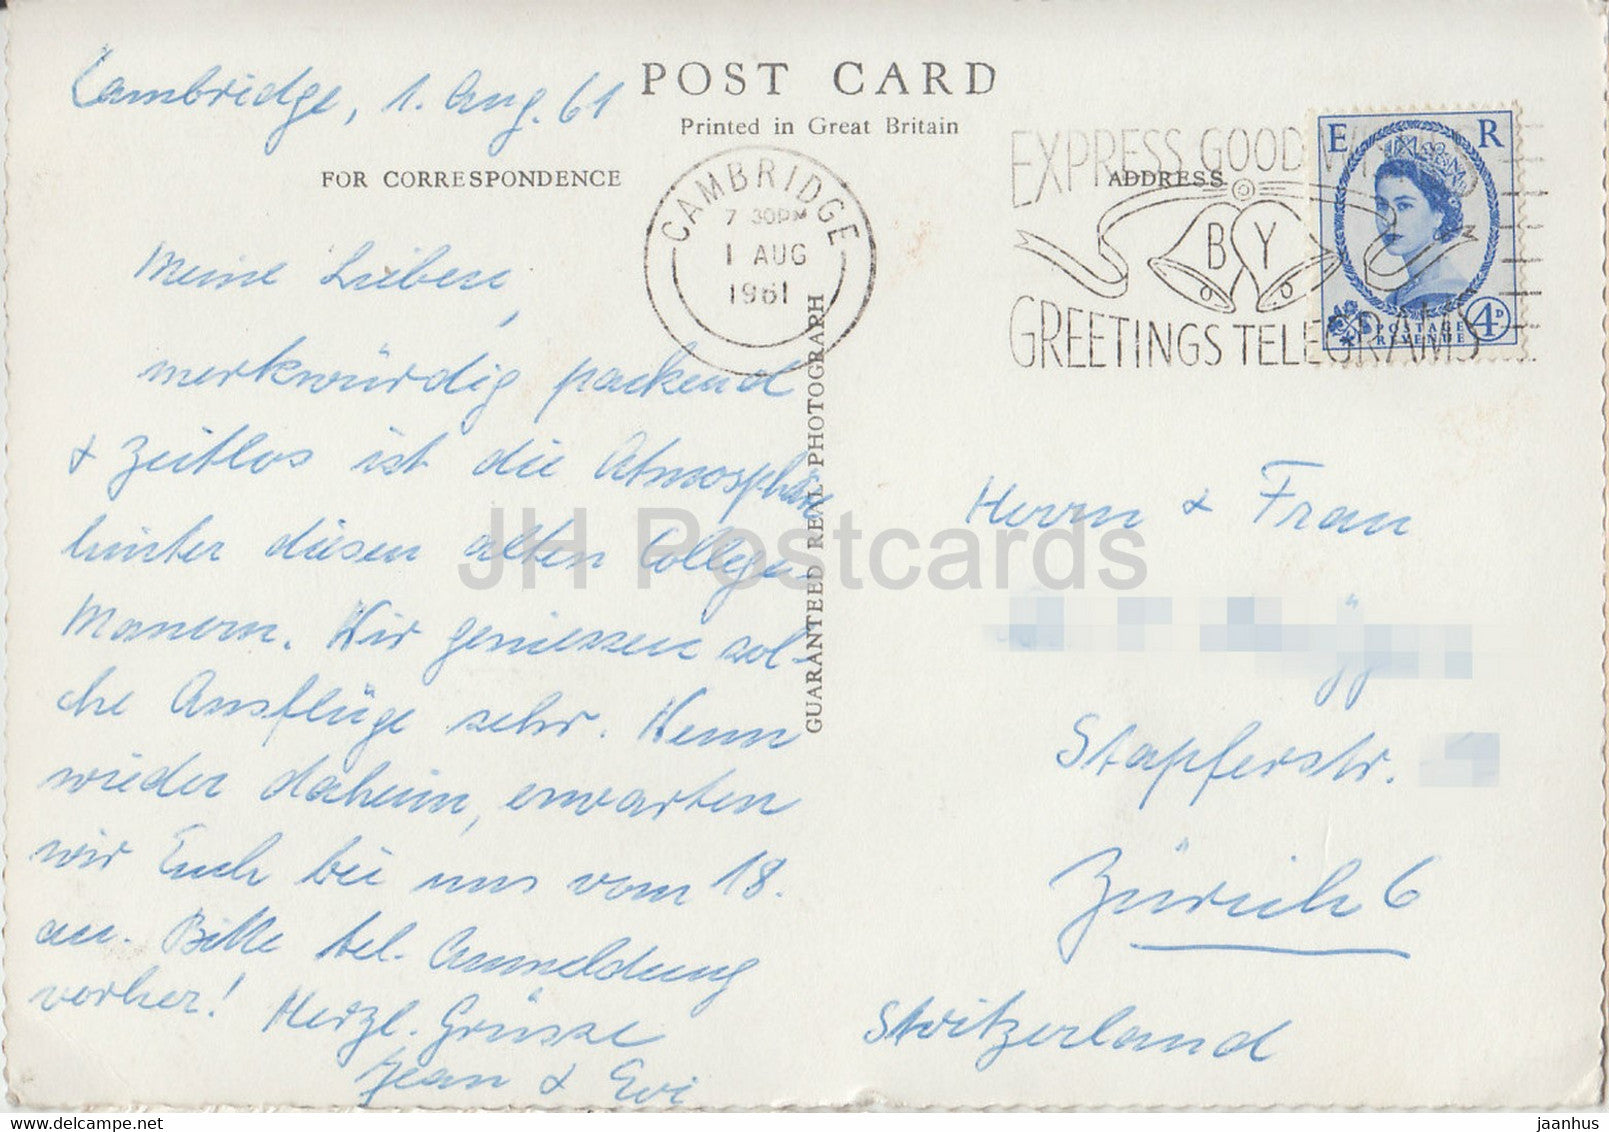 Cambridge, 1. Aug. 61
POST CARD
Printed in Great Britain
FOR CORRESPONDENCE
ADDRESS
CAMBRIDGE
7 30PM
1 AUG
1961
EXPRESS GOOD WISHES
BY
GREETINGS TELEGRAMS
E R
POSTAGE
REVENUE
4D
GUARANTEED REAL PHOTOGRAPH
Meine Lieben,
merkwürdig packend
& zeitlos ist die Atmosphäre
hinter diesen alten College-
Mauern. Wir geniessen sol-
che Ausflüge sehr. Wenn
wieder daheim, erwarten
wir Euch bei uns vom 18.
an. Bitte tel. Anmeldung
vorher! Herzl. Grüsse
Jean & Evi
Herrn & Frau
Stapferstr.
Zürich 6
Switzerland
JH Postcards
www.delcampe.net
jaanhus